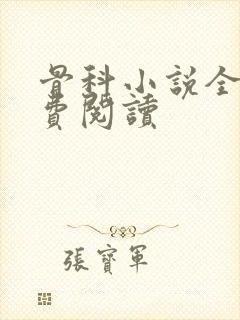 骨科小説全
費閱讀
張寶軍